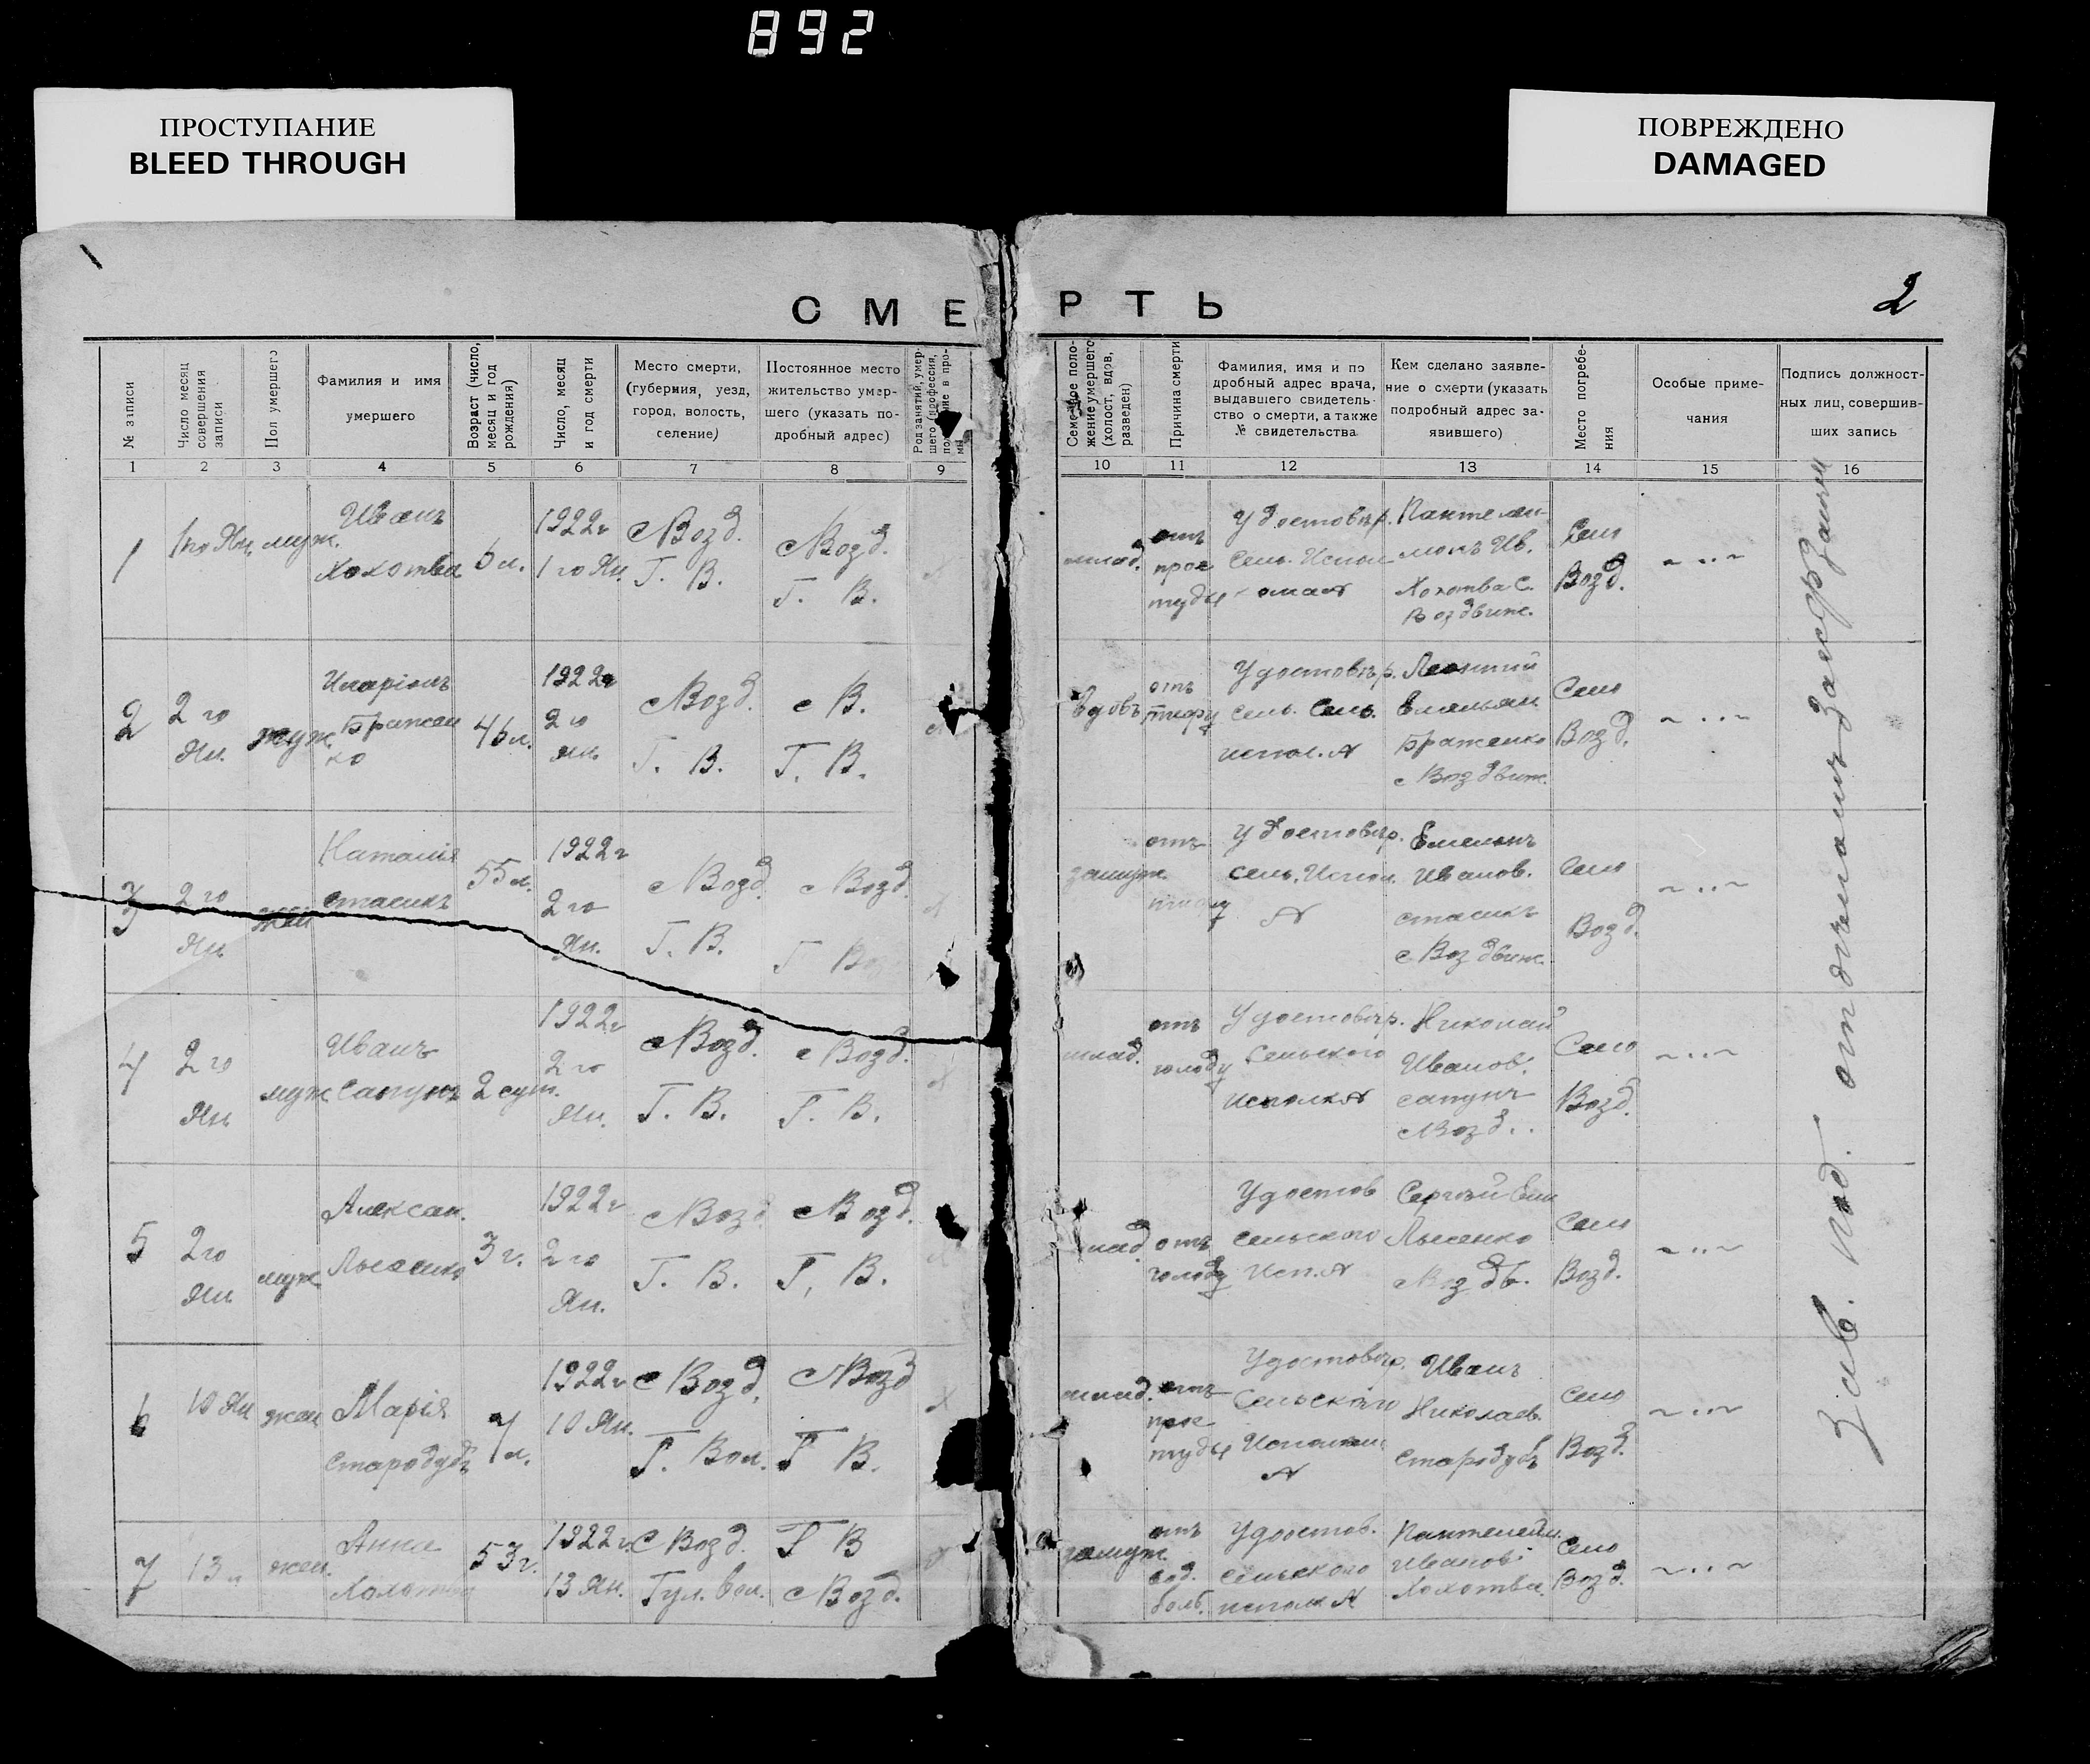 892
ПРОСТУПАНИЕ
BLEED THROUGH
ПОВРЕЖДЕНО
DAMAGED
2
СМЕРТЬ
№ записи
Число месяц
совершения
записи
Пол умершего
Фамилия и имя
умершего
Возраст (число,
месяц и год
рождения)
Число, месяц
и год смерти
Место смерти,
(губерния, уезд,
город, волость,
селение)
Постоянное место
жительство умер-
шего (указать по-
дробный адрес)
Род занятий, умер-
шего (профессия,
Семейное поло-
жение умершего
(холост, вдов,
разведен)
Причина смерти
Фамилия, имя и по
дробный адрес врача,
выдавшего свидетель-
ство о смерти, а также
№ свидетельства
Кем сделано заявле-
ние о смерти (указать
подробный адрес за-
явившего)
Место погребе-
ния
Особые приме-
чания
Подпись должност-
ных лиц, совершив-
ших запись
1 2 3 4 5 6 7 8 9 10 11 12 13 14 15 16
1
1го Ян.
муж.
Иванъ
Хохотва
6 л.
1922г
1 го Ян.
с Возд.
Г. В.
с Возд.
Г. В.
млад.
отъ
прос
туды
Удостовѣр.
Сель. Испол
кома №
Ив.
Хохотва С.
Воздвиж.
Село
Возд.
2
2 го
Ян.
муж.
Иларіонъ
Бражен
ко
46 л.
1922г
2 го
Ян.
с Возд.
Г. В.
с В.
Г. В.
Вдовъ
отъ
тифу
Удостовѣр.
Сель. Сель.
испол. №
Леонтий
Емельян.
Браженко
с Воздвиж.
Село
Возд.
3
2 го
Ян.
жен
Наталія
Стасикъ
55 л.
1922г
2 го
Ян.
с Возд.
Г. В.
с Возд.
Г
замуж.
отъ
Удостовѣр.
Сель. Испол.
№
Емельянъ
Иванов.
Стасикъ
с Воздвиж.
Село
Возд.
4
2 го
Ян.
муж
Иванъ
Сапунъ
2 сут.
1922г
2 го
Ян.
с Возд.
Г. В.
с Возд.
Г. В.
млад.
отъ
голоду
Удостовѣр.
Сельского
Исполк №
Николай
Иванов.
Сапунъ
с Возд.
Село
Возд.
5
2 го
Ян.
муж
Алексан.
Лысенко
3 г.
1922г
2 го
Ян.
с Возд
Г. В.
с Возд.
Г. В.
млад
отъ
голоду
Удостов
Сельского
Исп. №
Сергѣй
Лысенко
с Воздв.
Село
Возд.
6
10 Ян
жен
Марія
Стародубъ
7 л.
1922г
10 Ян.
с Возд.
Г. Вол.
с Возд
Г В.
млад.
отъ
прос
туды
Удостовѣр.
Сельского
№
Иванъ
Николаев.
Стародубъ
Село
Возд.
7
13
жен.
Анна
53 г.
1922г.
13 Ян.
С Возд.
Гул. Вол.
Г В
с Возд.
замуж.
отъ
боль.
Удостов.
Сельского
исполк №
Пантелейм.
Иванов.
Хохотва.
Село
Возд.
Зав. под.